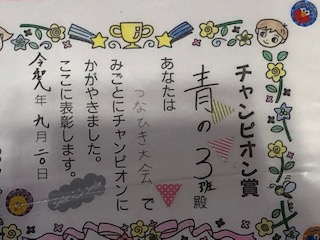 チャンピオン賞
青の3班殿
あなたは
つなひき大会で
みごとにチャンピオンに
かがやきました。
ここに表彰します。
令和年九月二〇日